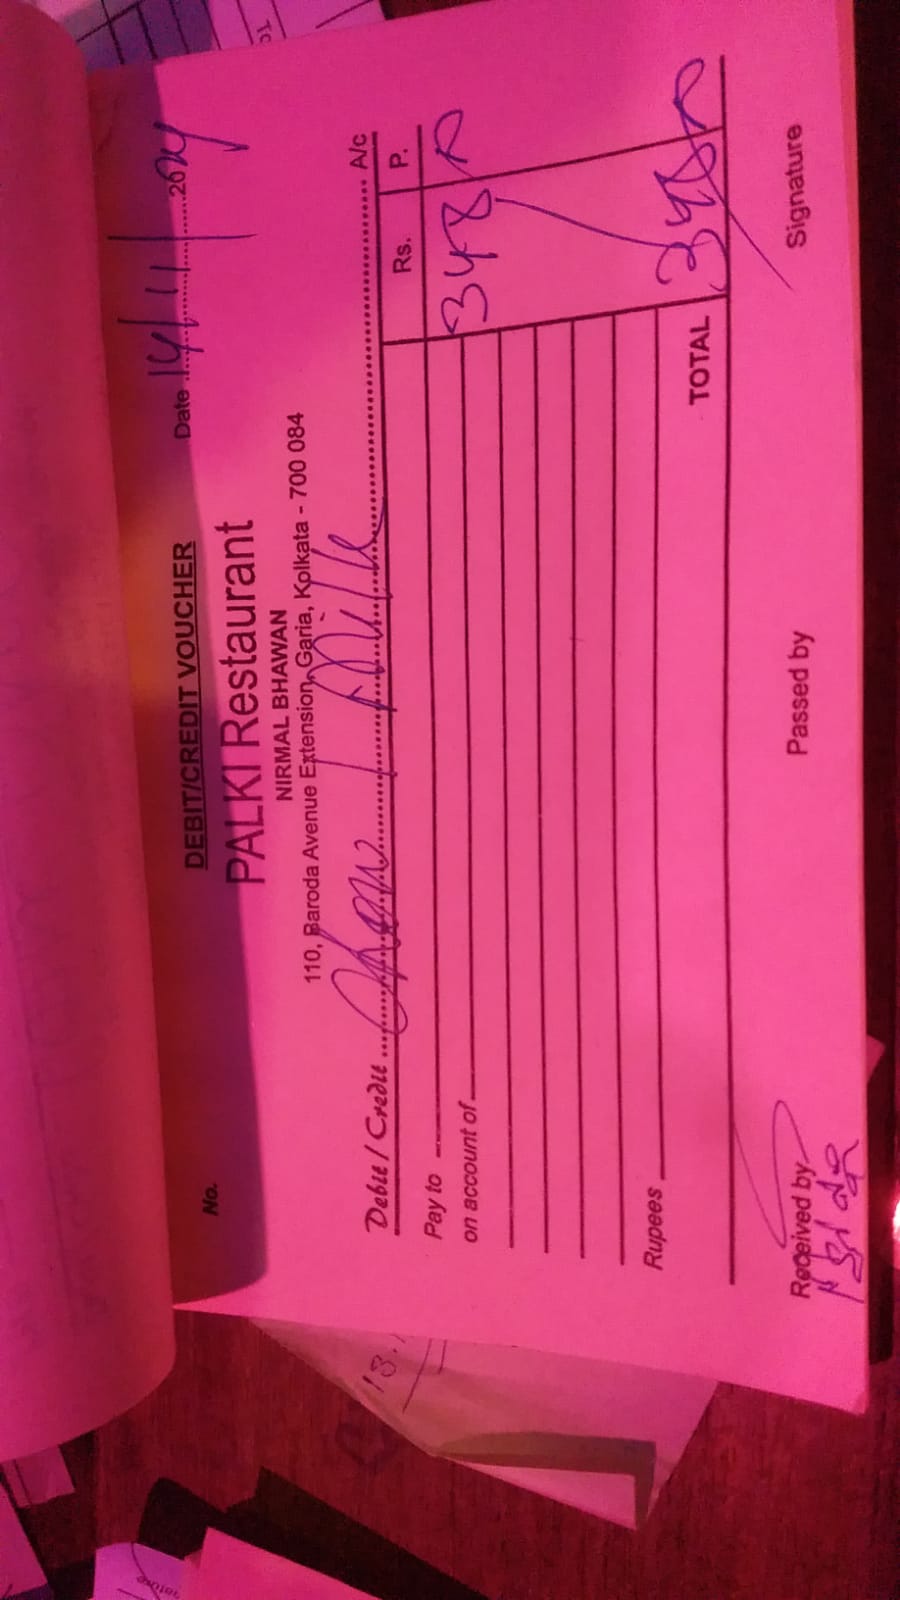 DEBIT/CREDIT VOUCHER
No.
Date 14/11/2024
PALKI Restaurant
NIRMAL BHAWAN
110, Baroda Avenue Extension, Garia, Kolkata - 700 084
Debit / Credit Milk A/c
Rs. P.
Pay to 348
on account of
Rupees
TOTAL 348
Received by Passed by Signature
13.